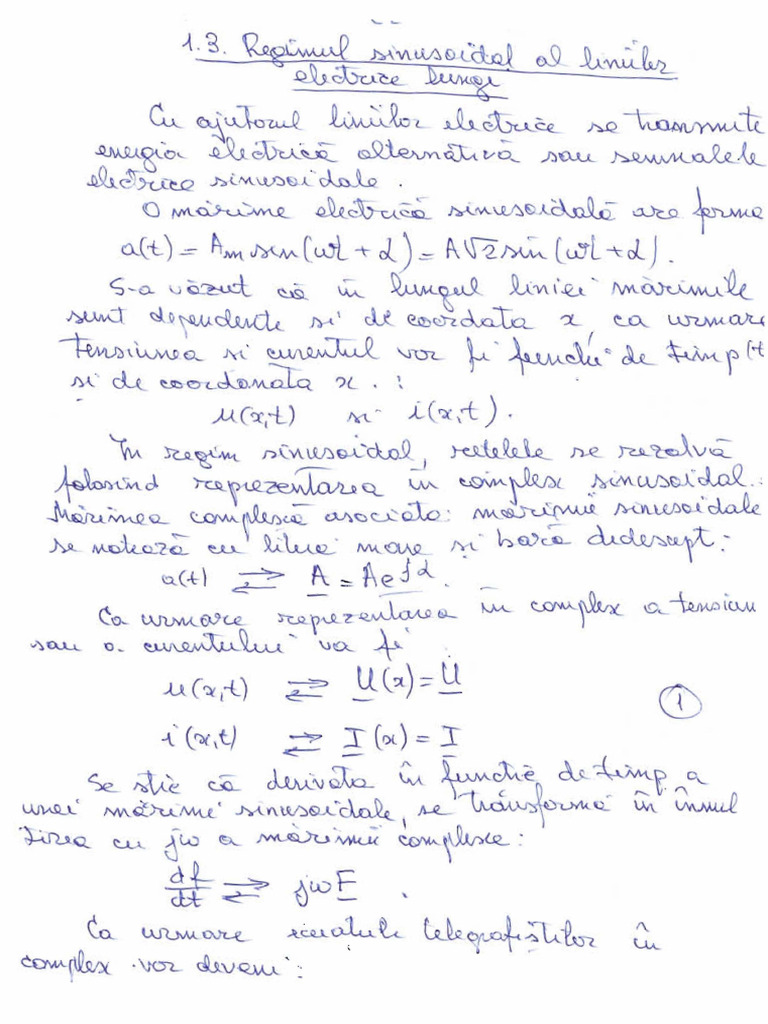 1.3. Regimul sinusoidal al liniilor
electrice lungi
Cu ajutorul liniilor electrice se transmite
energia electrică alternativă sau semnalele
electrice sinusoidale.
O mărime electrică sinusoidală are forma
a(t) = Am sin(ωt + α) = A√2 sin(ωt + α).
S-a văzut că în lungul liniei mărimile
sunt dependente și de coordata x, ca urmare
tensiunea si curentul vor fi funcție de timp (t
și de coordonata x. :
u(x,t) si i(x,t).
În regim sinusoidal, rețelele se rezolvă
folosind reprezentarea în complex sinusoidal.
Mărimea complexă asociata mărimii sinusoidale
se notează cu litere mare și bară dedesupt:
a(t) ⇄ A̲ = Ae^jα.
Ca urmare reprezentarea în complex a tensiun
sau a curentului va fi
u(x,t) ⇄ U̲(x) = U̲
i(x,t) ⇄ I̲(x) = I̲
1
Se stie că derivata în funcție de timp a
unei mărimi sinusoidale, se transformă în înmul
țirea cu jω a mărimii complexe:
df/dt ⇄ jωF̲.
Ca urmare ecuatiile telegrafiștilor în
complex vor deveni: